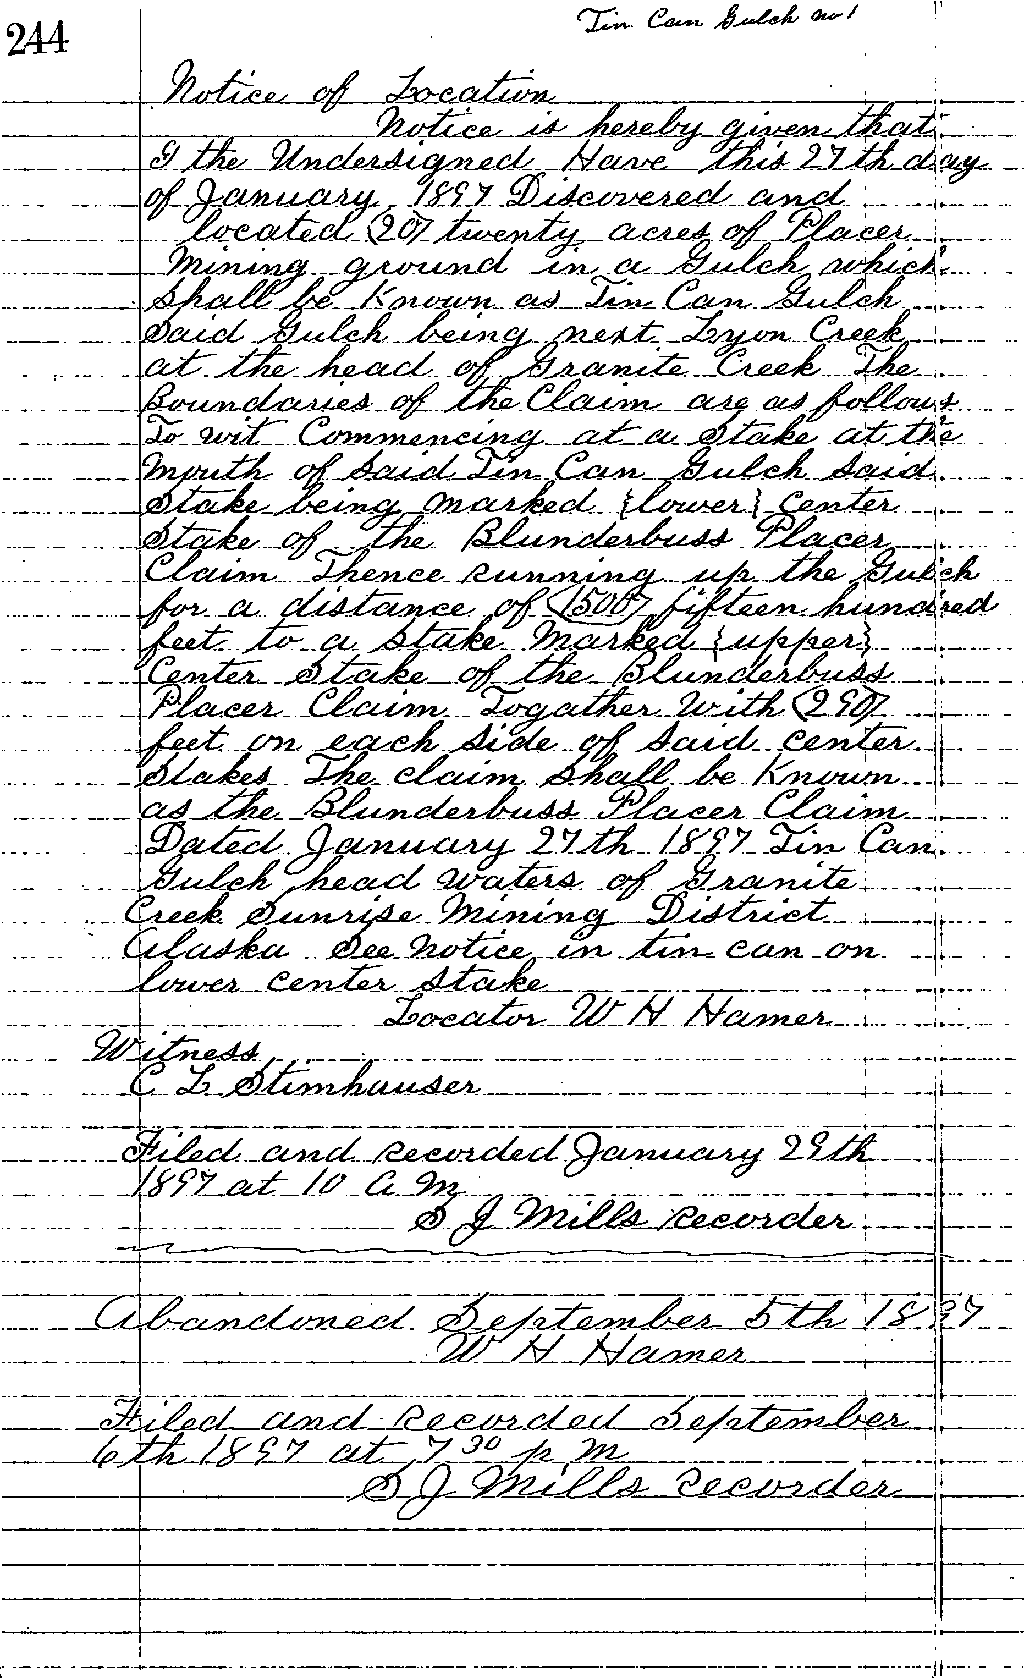 Tin Can Gulch no 1
244
Notice of Location
Notice is hereby given that
I the Undersigned Have this 27th day
of January 1897 Discovered and
located (20) twenty acres of Placer
Mining ground in a Gulch which
shall be Known as Tin Can Gulch
Said Gulch being next Lyon Creek
at the head of Granite Creek The
Boundaries of the Claim are as follows
To wit Commencing at a Stake at the
Mouth of Said Tin Can Gulch Said
Stake being marked {lower} center
Stake of the Blunderbuss Placer
Claim Thence running up the Gulch
for a distance of (1500) fifteen hundred
feet to a Stake Marked {upper}
Center Stake of the Blunderbuss
Placer Claim Togather With (290)
feet on each Side of Said center
Stakes The claim Shall be Known
as the Blunderbuss Placer Claim
Dated January 27th 1897 Tin Can
Gulch head waters of Granite
Creek Sunrise Mining District
Alaska See Notice in tin can on
lower center stake
Locator W H Hamer
Witness
C L Stimhauser
Filed and recorded January 29th
1897 at 10 A M
S J Mills Recorder
Abandoned September 5th 1897
W H Hamer
Filed and Recorded September
6th 1897 at 7 30 p M
S J Mills recorder